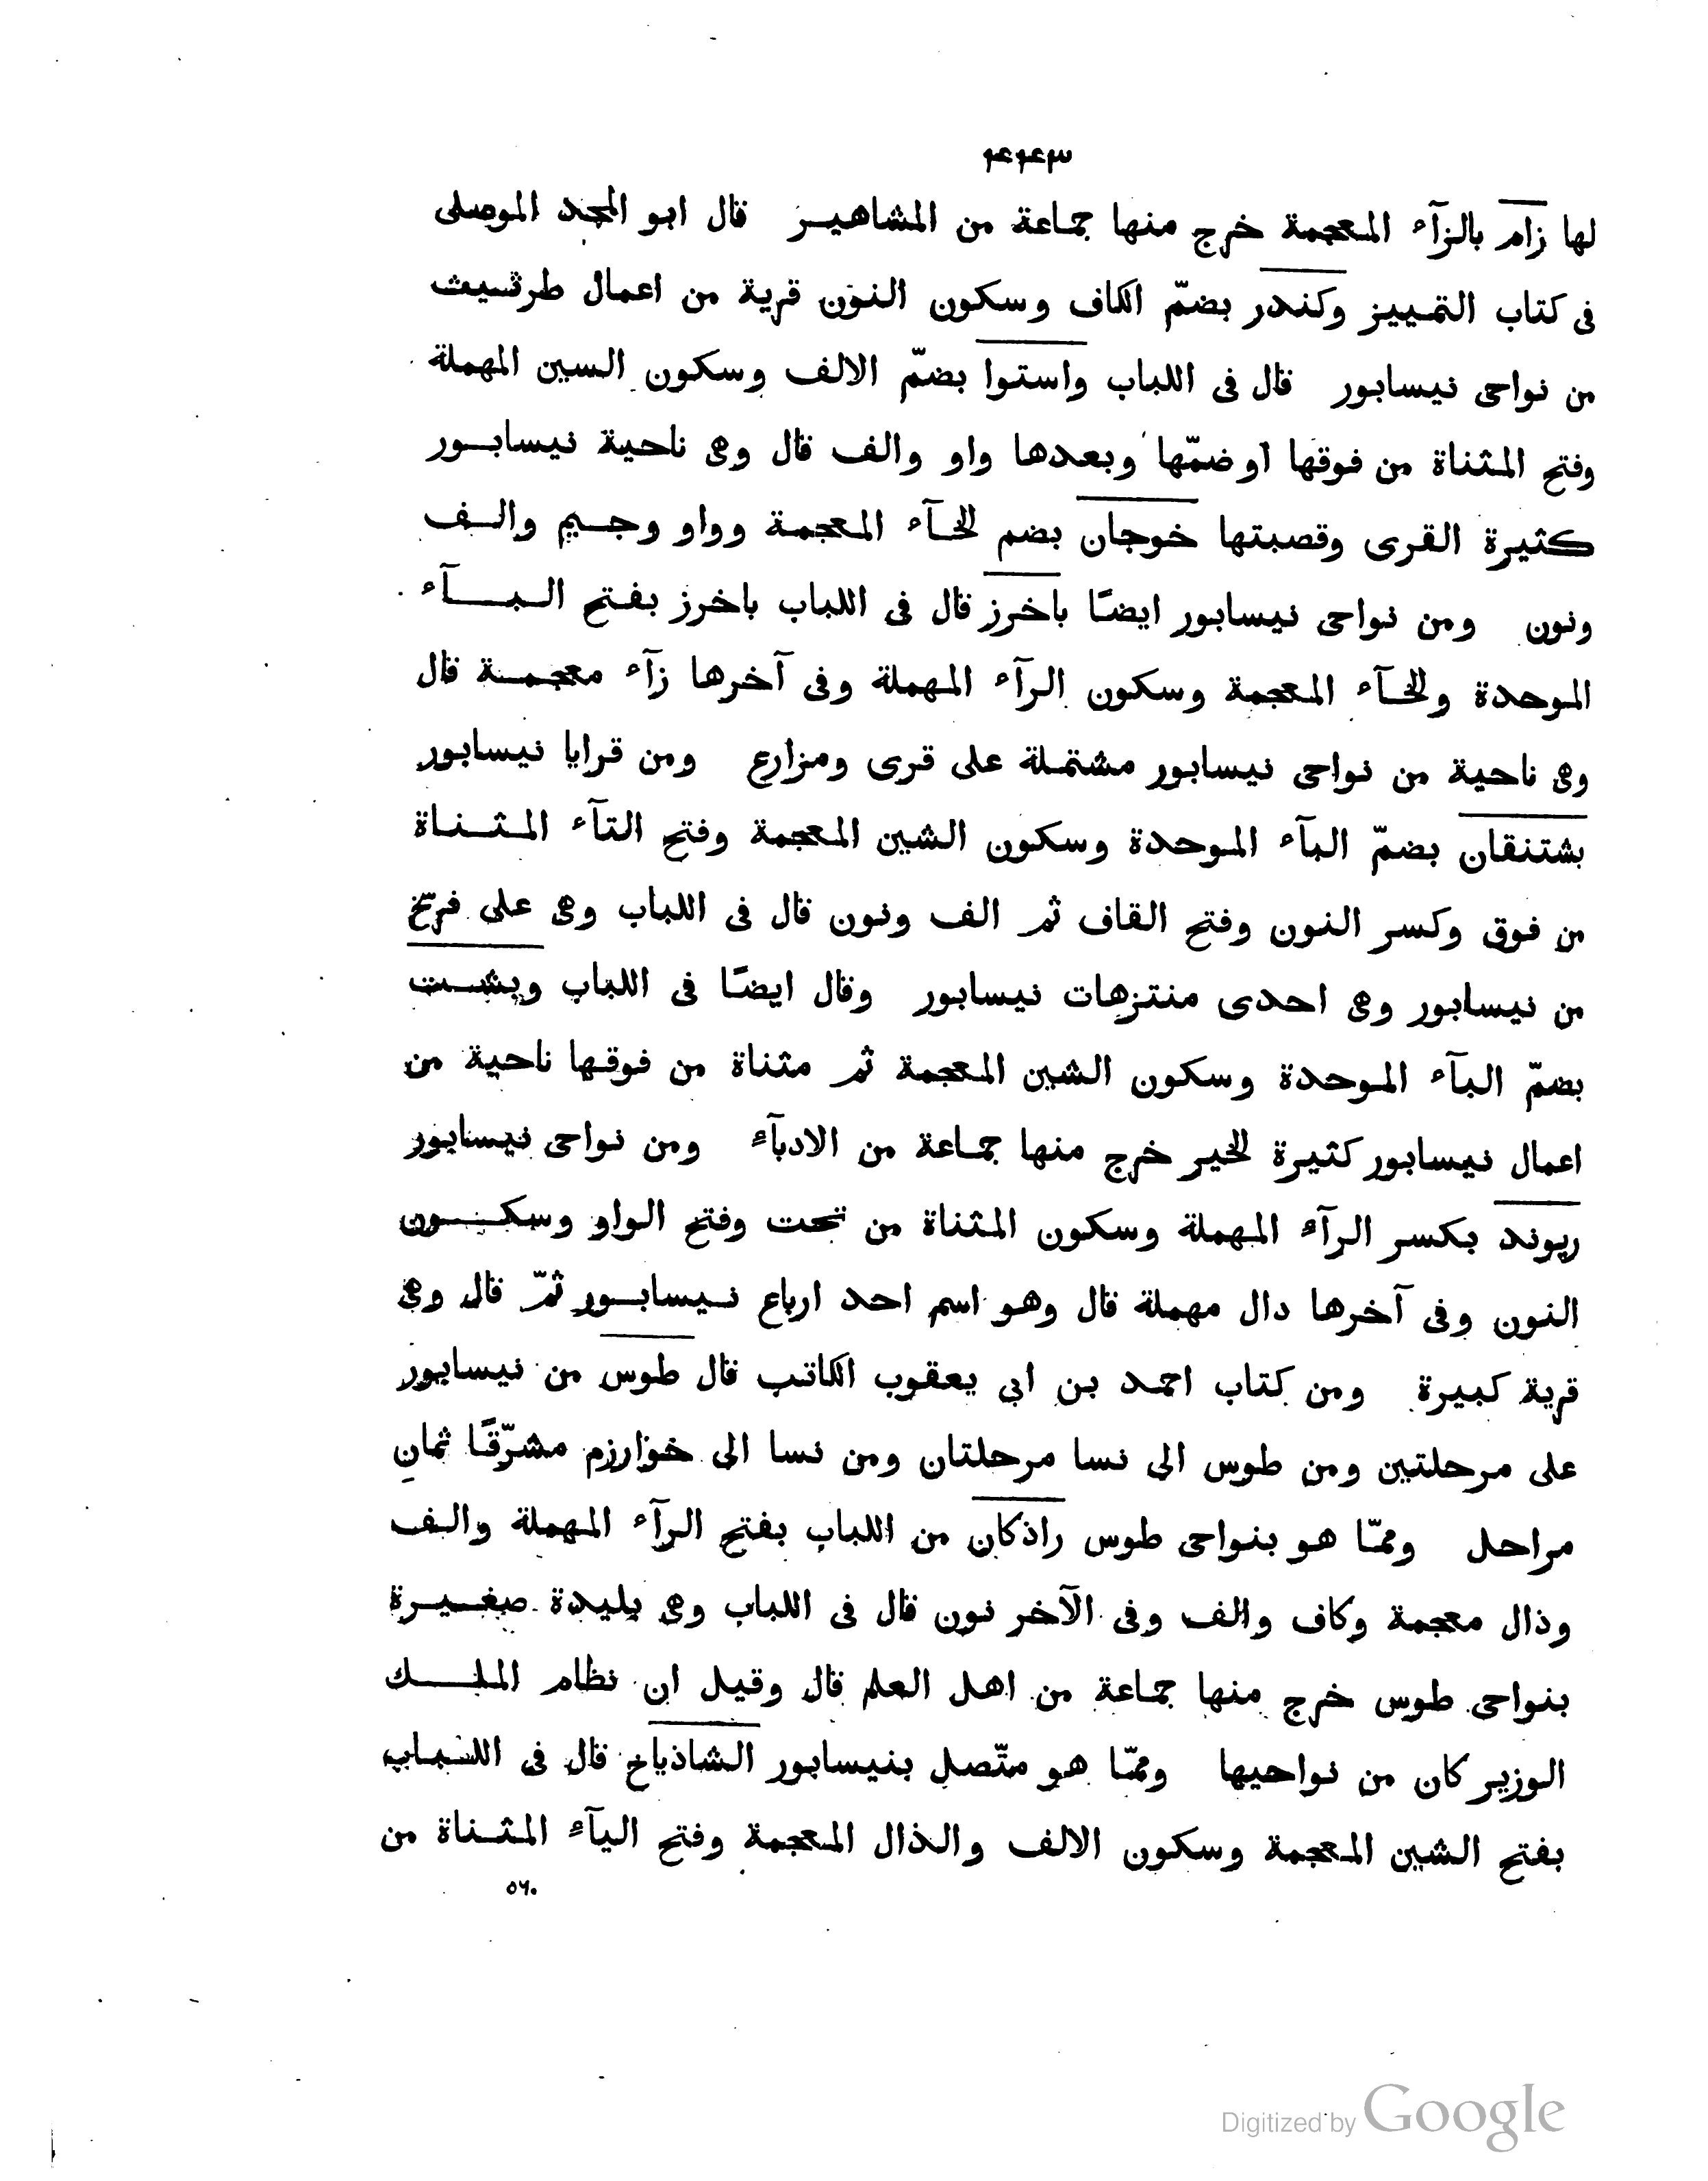 ۴۴۳
لها زام بالزآء المعجمة خرج منها جماعة من المشاهير قال ابو المجد الموصلى
فى كتاب التمييز وكندر بضمّ الكاف وسكون النون قرية من اعمال طرثيث
من نواحى نيسابور قال فى اللباب واستوا بضمّ الالف وسكون السين المهملة
وفتح المثناة من فوقها او ضمّها وبعدها واو والف قال وهى ناحية نيسابور
كثيرة القرى وقصبتها خوجان بضم الخآء المعجمة وواو وجيم والف
ونون ومن نواحى نيسابور ايضًا باخرز قال فى اللباب باخرز بفتح البآء
الموحدة والخآء المعجمة وسكون الرآء المهملة وفى آخرها زآء معجمة قال
وهى ناحية من نواحى نيسابور مشتملة على قرى ومزارع ومن قرايا نيسابور
بشتنقان بضمّ البآء الموحدة وسكون الشين المعجمة وفتح التآء المثناة
من فوق وكسر النون وفتح القاف ثم الف ونون قال فى اللباب وهى على فرسخ
من نيسابور وهى احدى منتزهات نيسابور وقال ايضًا فى اللباب وبشت
بضمّ البآء الموحدة وسكون الشين المعجمة ثم مثناة من فوقها ناحية من
اعمال نيسابور كثيرة الخير خرج منها جماعة من الادبآء ومن نواحى نيسابور
ريوند بكسر الرآء المهملة وسكون المثناة من تحت وفتح الواو وسكون
النون وفى آخرها دال مهملة قال وهو اسم احد ارباع نيسابور ثمّ قال وهى
قرية كبيرة ومن كتاب احمد بن ابى يعقوب الكاتب قال طوس من نيسابور
على مرحلتين ومن طوس الى نسا مرحلتان ومن نسا الى خوارزم مشرّقًا ثمان
مراحل وممّا هو بنواحى طوس راذكان من اللباب بفتح الرآء المهملة والف
وذال معجمة وكاف والف وفى الآخر نون قال فى اللباب وهى بليدة صغيرة
بنواحى طوس خرج منها جماعة من اهل العلم قال وقيل ان نظام الملك
الوزير كان من نواحيها وممّا هو متّصل بنيسابور الشاذياخ قال فى اللباب
بفتح الشين المعجمة وسكون الالف والذال المعجمة وفتح اليآء المثناة من
٥٦٠
Digitized by Google